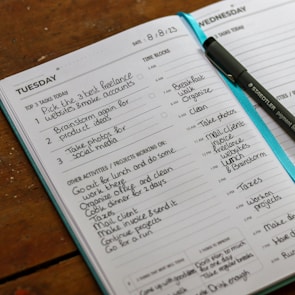 WEDNESDAY
TUESDAY
DATE: 8/8/23
TOP 3 TASKS TODAY
1 Pick the 3 best freelance
websites & make accounts
2 Brainstorm again for
product ideas
3 Take photos for
social media
OTHER ACTIVITIES / PROJECTS WORKING ON:
Go out for lunch and do some
work there
Organize office and clean
Cook dinner for 2 days
Taxes
Mail client
Make invoice & send it
Continue projects
Go for a run
TIME BLOCKS:
Breakfast
Walk
Organize
+ clean
Take photos
Mail client
invoice
freelance
websites
Lunch
& Brainstorm
Taxes
Working on
projects
Make dinner
Have
Drink enough
Come up with good
Don't plan to much
for one day
Take regular breaks
TOP 3 TASKS TODAY
1
2
3
STAEDTLER